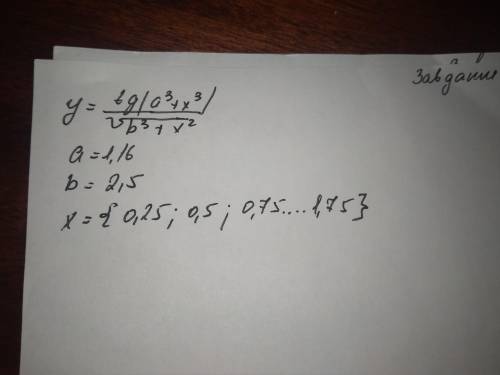 Завдання
y = tg(a³+x³) / √b³+x²
a = 1,16
b = 2,5
x = { 0,25 ; 0,5 ; 0,75.... 1,75}